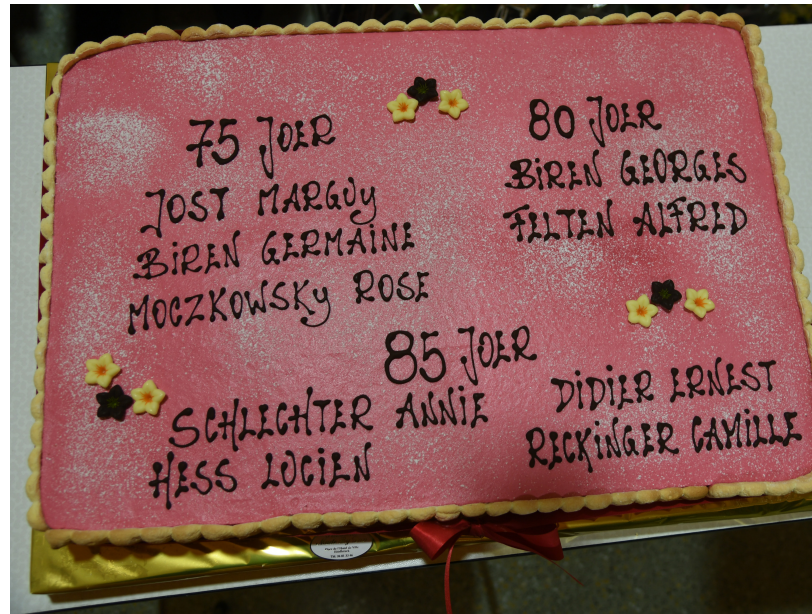 75 JOER
JOST MARGUY
BIREN GERMAINE
MOCZKOWSKY ROSE
80 JOER
BIREN GEORGES
FELTEN ALFRED
85 JOER
SCHLECHTER ANNIE
HESS LUCIEN
DIDIER ERNEST
RECKINGER CAMILLE